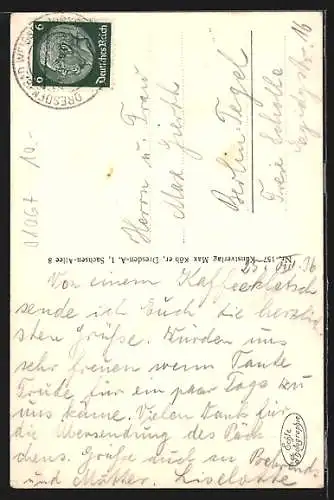 DRESDEN
Deutsches Reich
6 6
Herrn u. Frau
Max Gierth
Berlin-Tegel
Freie Scholle
Egidystr. 16
01067 10.-
Nr. 157 Kunstverlag Max Köhler, Dresden-A. 1, Sachsen-Allee 8
VIII. 36
Von einem Kaffeeklatsch
sende ich Euch die herzlich-
sten Grüße. Würden uns
sehr freuen wenn Tante
Trude für ein paar Tage zu
uns käme. Vielen Dank für
die Übersendung des Päck-
chens. Grüße auch an
und Mutter. Liselotte
Echte
Photographie